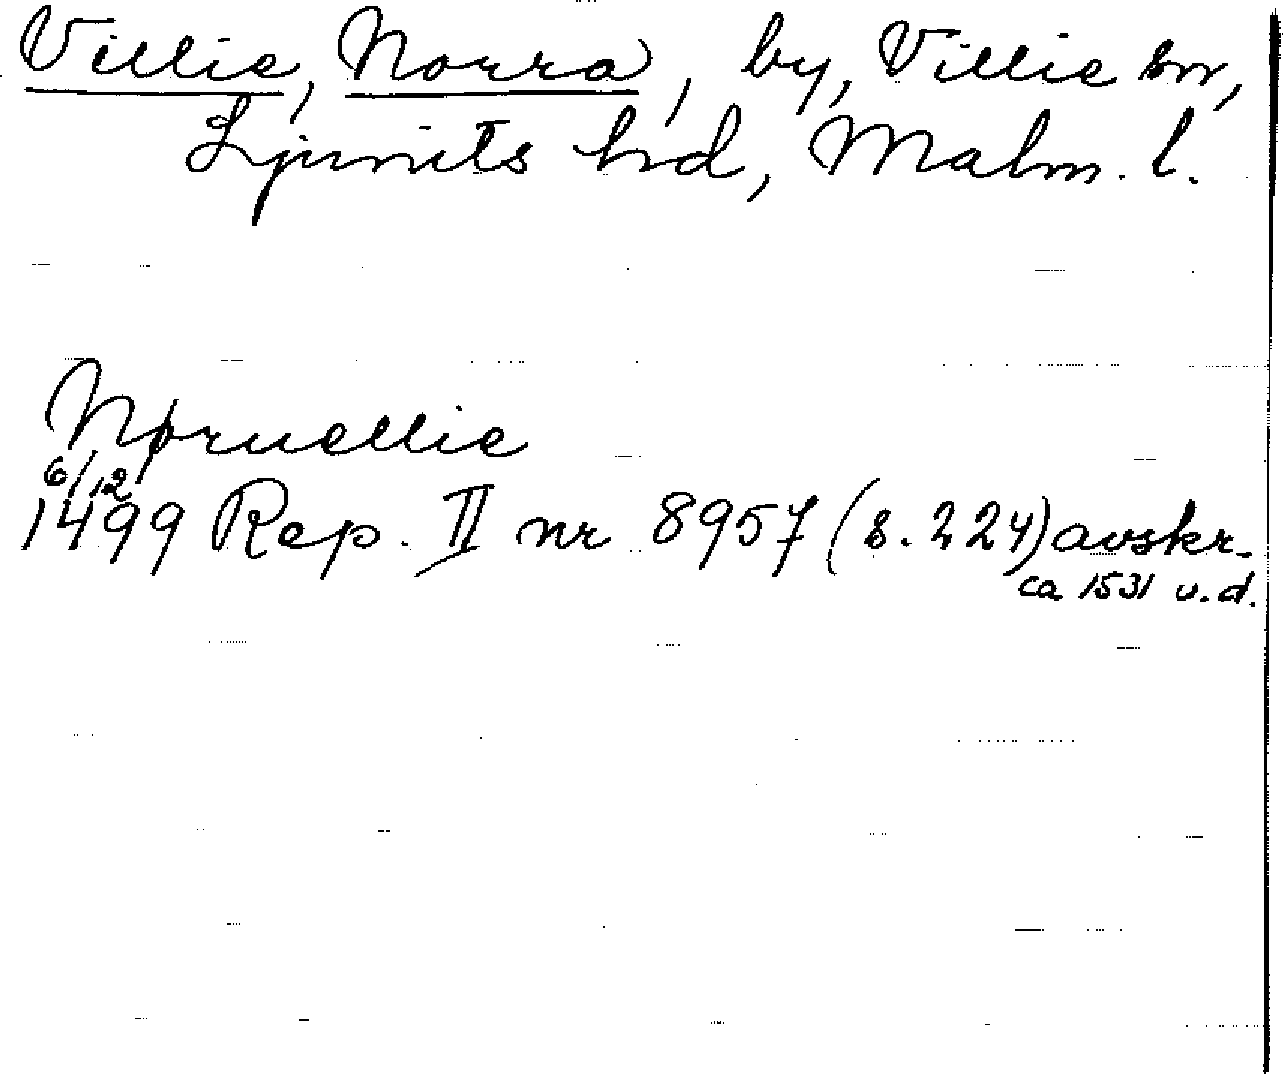 Villie, Norra, by, Villie sn,
Ljunits hd, Malm. l.
Nøruellie
6/12
1499 Rep. II nr 8957 (s. 224) avskr.
ca 1531 u.d.